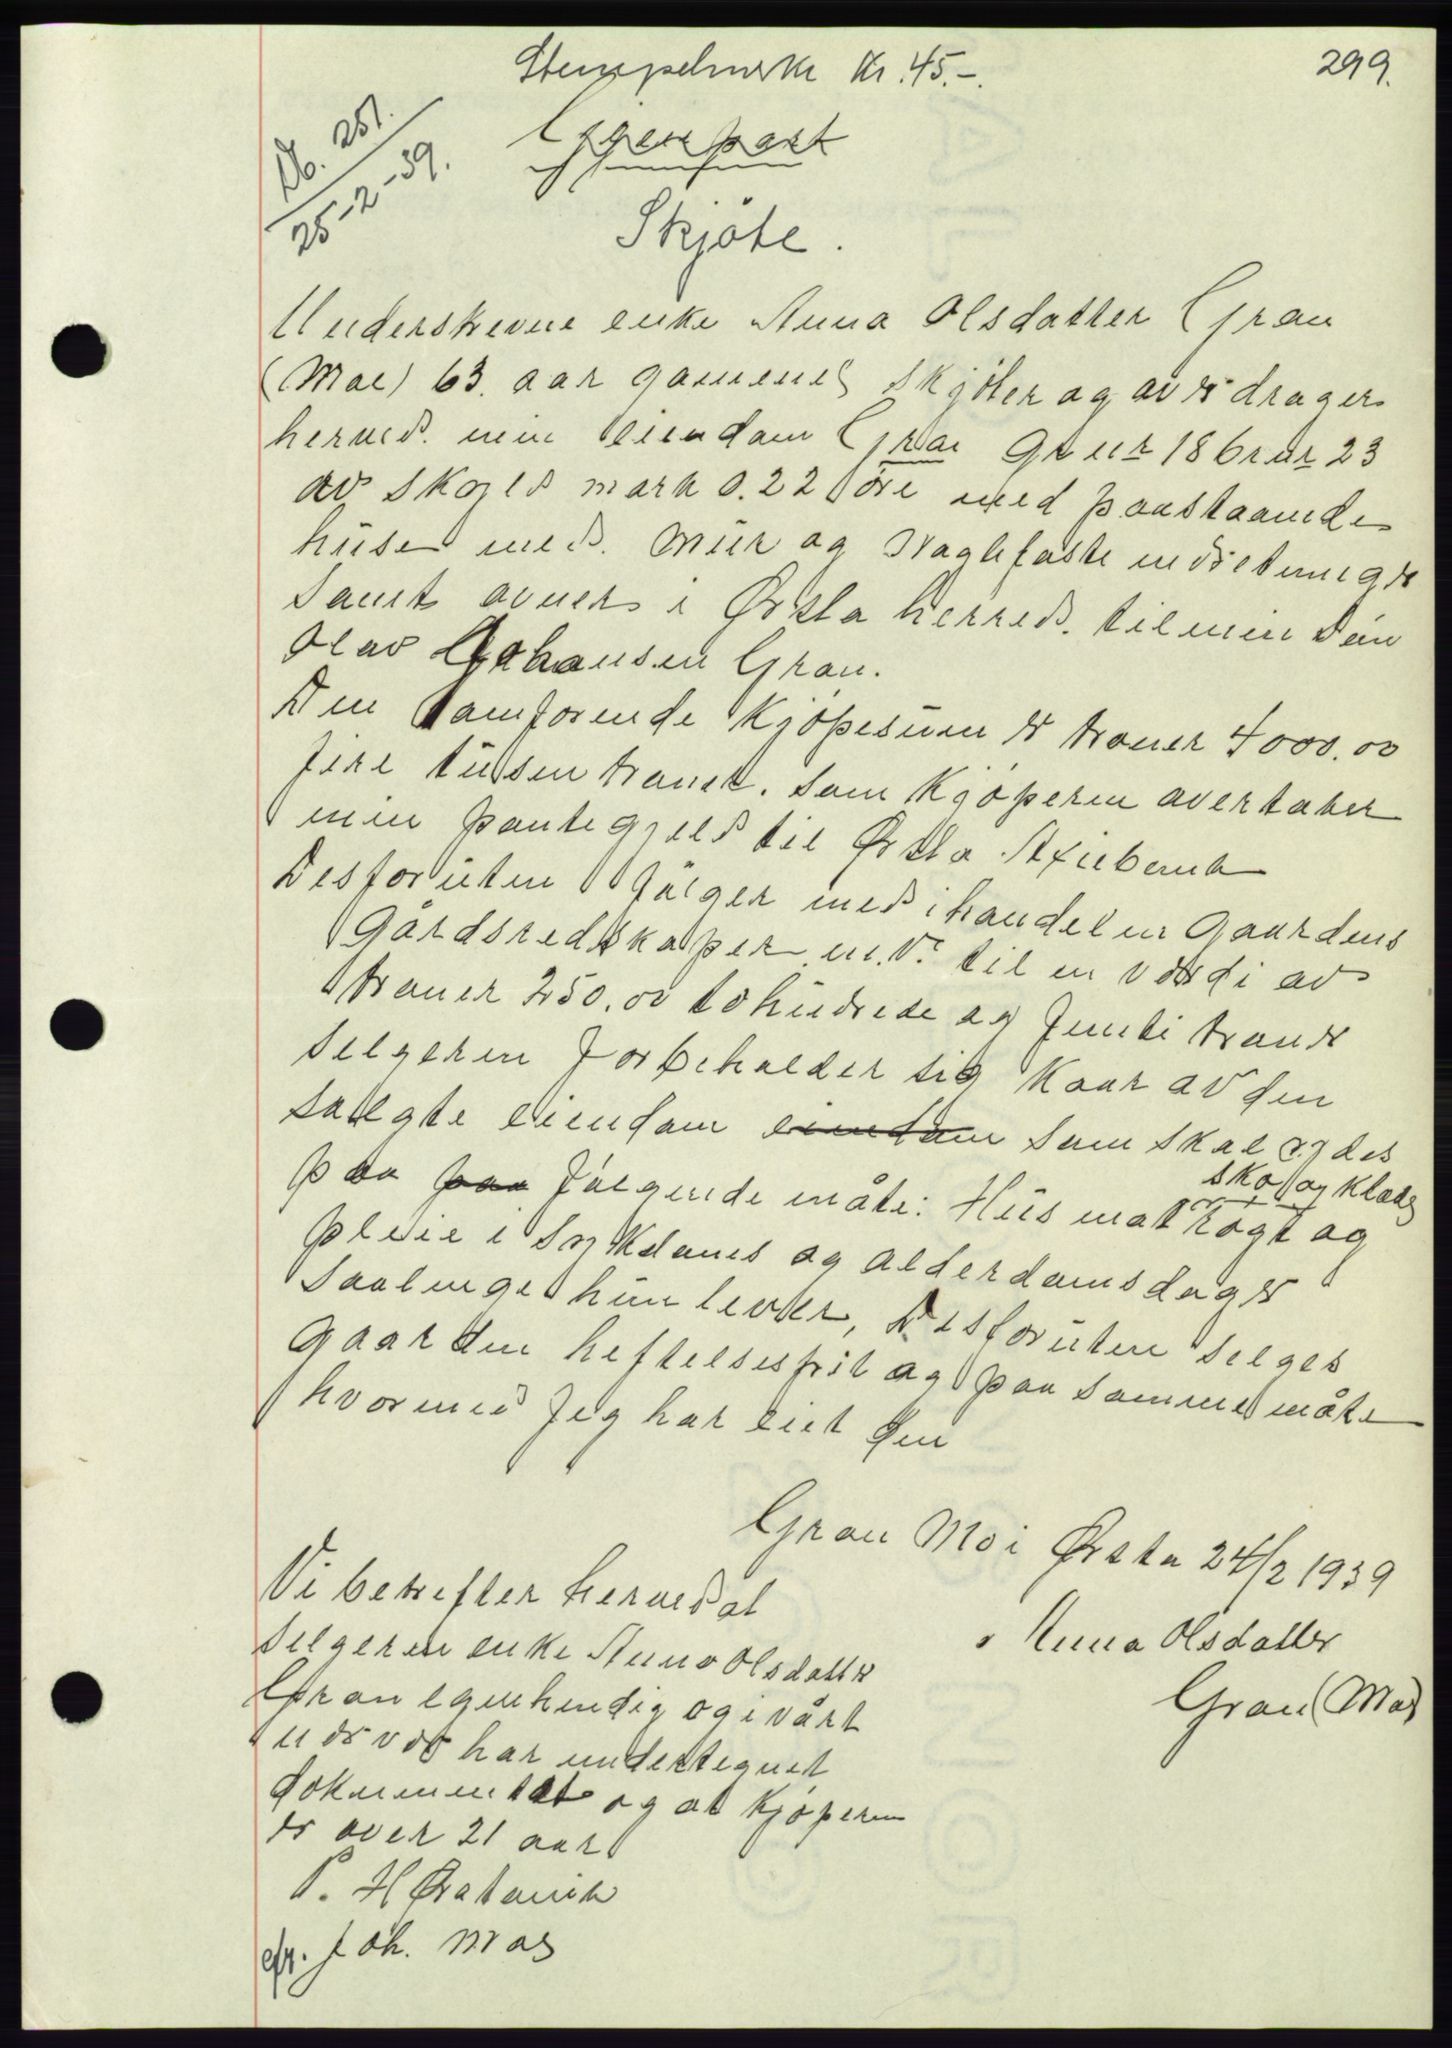 Stempelmerke Kr. 45.-.
299.
Db. 251.
25-2-39.
Gjenpart
Skjöte.
Underskrevne enke Anna Olsdatter Gran
(Moe) 63. aar gammel skjöter og averdrager
herved. min eiendom Gran Grnr 18 brnr 23
av skyld mark 0.22 öre med paastaaende
huse med. Mur og Naglefaste indretninger
samt avner i Ørsta herred. til min Sön
Olav Johansen Gran.
Den omforende Kjöpesum er kroner 4000.00
fire tusen kroner. Som Kjöperen overtaker
min pantegjeld til Ørsta Aktiebank
Desforuten fölger med i handelen Gaardens
Gårdsredskaper m.v. til en værdi av
kroner 250.00 tohundrede og femti kroner
Selgeren forbeholder sig Kaar av den
solgte eiendom eiendom som skal ydes
paa paa fölgende måte: Hus mat sko og Klæder
Rogt og
pleie i Sykdoms og alderdomsdager
saalenge hun lever, Desforuten selges
Gaarden heftelsesfrit og paa samme måte
hvormed Jeg har eiet den
Gran Mo i Ørsta 24/2 1939
Anna Olsdatter
Gran (Moe)
Vi bekrefter herved at
Selgeren enke Anna Olsdatter
Gran egenhendig og i vårt
nærvær har undertegnet
dokumentet og at Kjöperen
er over 21 aar
P. H Ørstavik
Joh. Moe